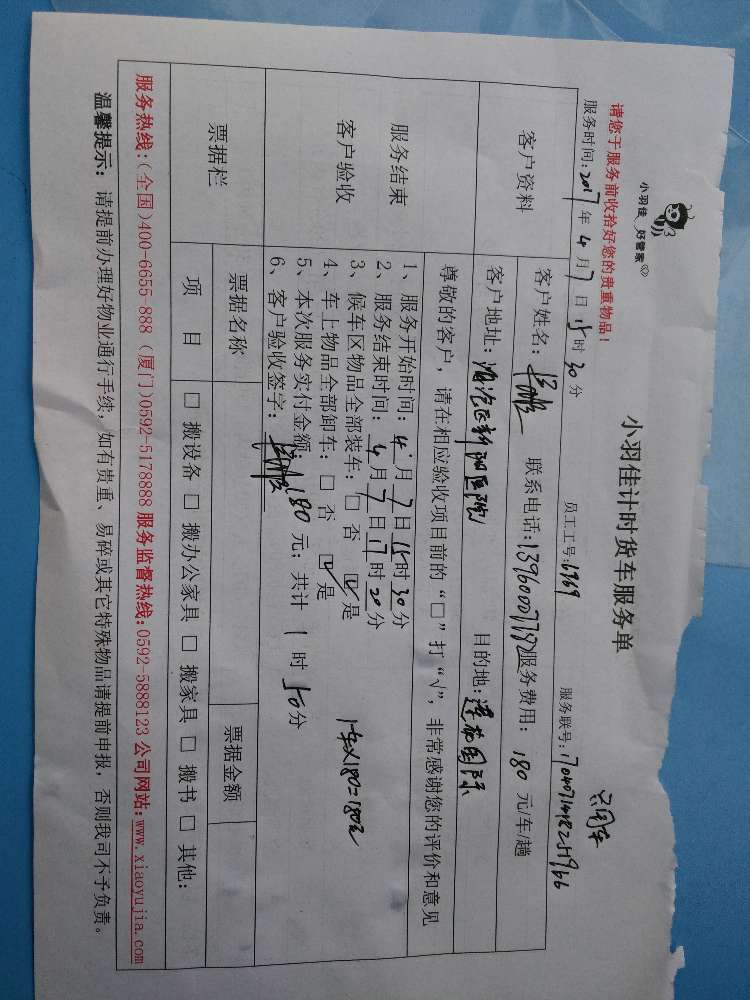 小羽佳 好管家
小羽佳计时货车服务单
只用车
请您于服务前收拾好您的贵重物品!
服务时间:2017年4月7日15时30分 员工工号:6969 服务联号:
客户资料
客户姓名: 联系电话: 服务费用:180元/车/趟
客户地址:海沧区新阳医院 目的地:莲花国际
尊敬的客户,请在相应验收项目前的“□”打“√”,非常感谢您的评价和意见
服务结束
客户验收
1、服务开始时间:4月7日15时30分
2、服务结束时间:4月7日17时20分
3、候车区物品全部装车:□ 否 ☑ 是
4、车上物品全部卸车:□ 否 ☑ 是
1车×180=180元
5、本次服务实付金额:180元;共计1时50分
6、客户验收签字:
票据栏
票据名称 票据金额
项 目 □ 搬设备 □ 搬办公家具 □ 搬家具 □ 搬书 □ 其他:
服务热线:(全国)400-6655-888 (厦门)0592-5178888 服务监督热线:0592-5888123 公司网站:www.xiaoyujia.com
温馨提示: 请提前办理好物业通行手续,如有贵重、易碎或其它特殊物品请提前申报,否则我司不予负责。